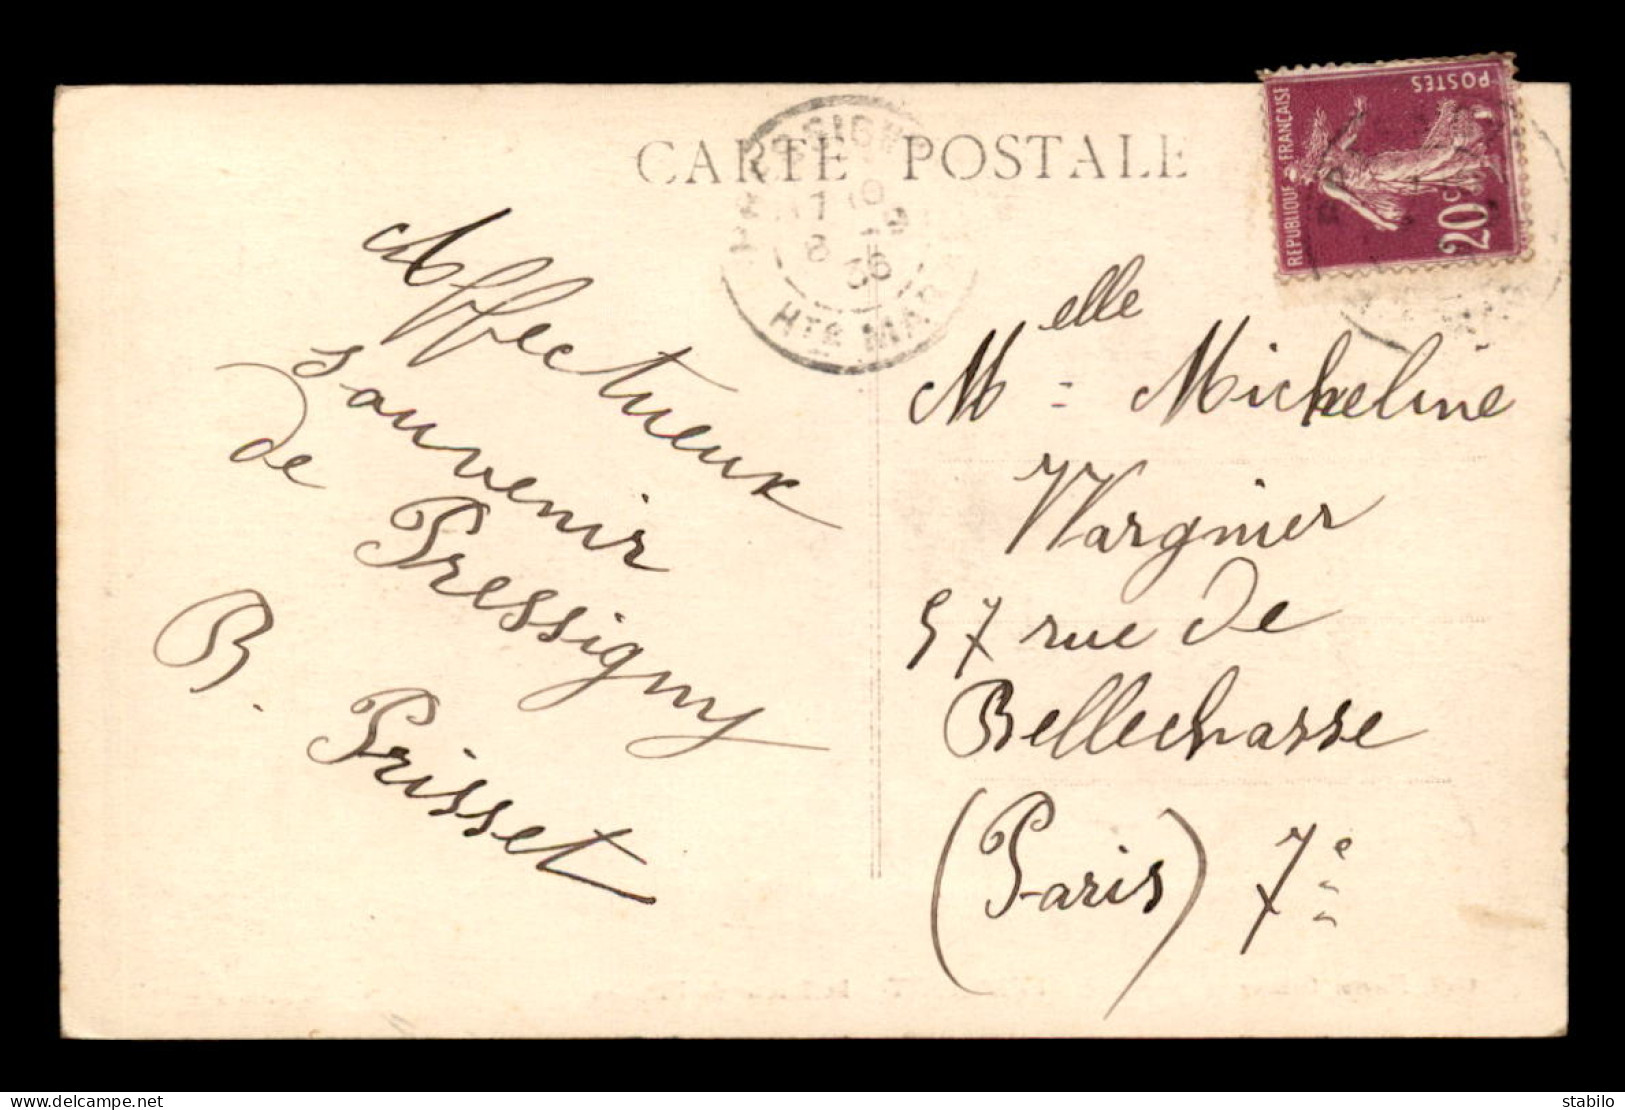 CARTE POSTALE
PRESSIGNY
17 10
8 -9
36
HTE MAR
POSTES
REPUBLIQUE FRANÇAISE
20c
Affectueux
souvenir
de Pressigny
B. Prisset
Melle Micheline
Wargnier
57 rue de
Bellechasse
(Paris) 7e
www.delcampe.net
stabilo